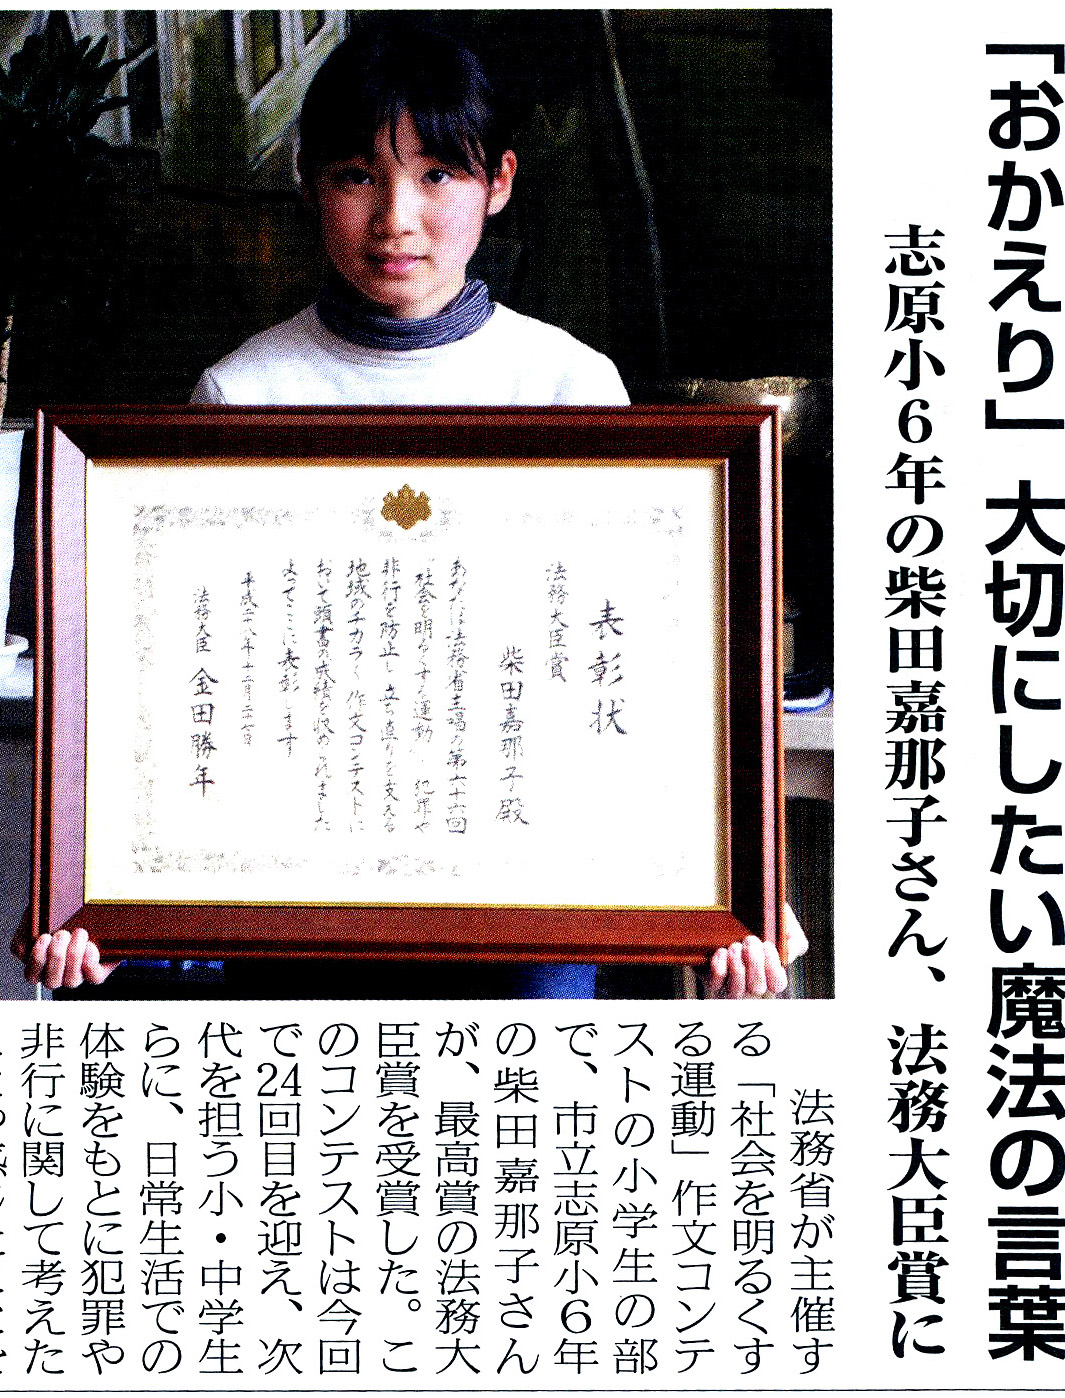 「おかえり」大切にしたい魔法の言葉
志原小6年の柴田嘉那子さん、法務大臣賞に
表彰状
法務大臣賞
柴田嘉那子殿
あなたは法務省主唱の第六十六回
“社会を明るくする運動”犯罪や
非行を防止し立ち直りを支える
地域のチカラ〜作文コンテストに
おいて頭書の成績を収められました
よってここに表彰します
平成二十八年十二月二十七日
法務大臣 金田勝年
法務省が主催す
る「社会を明るくす
る運動」作文コンテ
ストの小学生の部
で、市立志原小6年
の柴田嘉那子さん
が、最高賞の法務大
臣賞を受賞した。こ
のコンテストは今回
で24回目を迎え、次
代を担う小・中学生
らに、日常生活での
体験をもとに犯罪や
非行に関して考えた